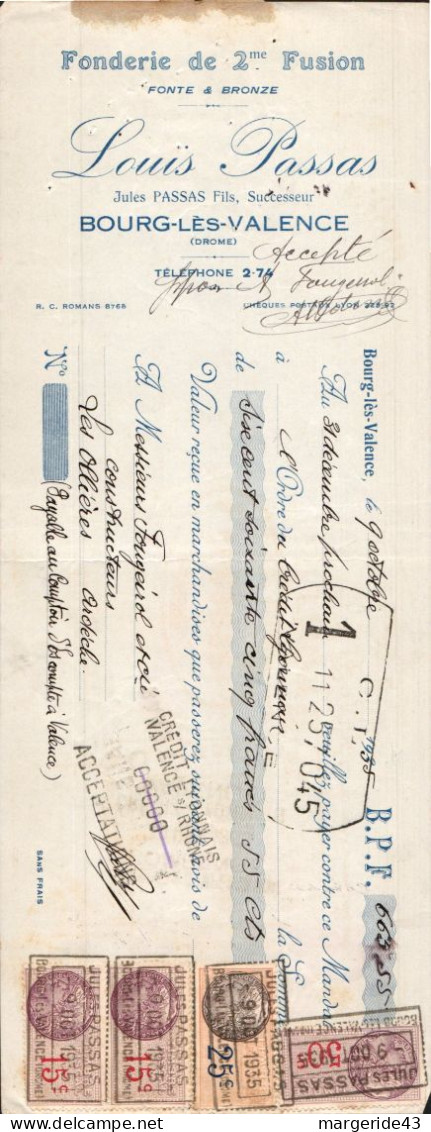 Fonderie de 2me Fusion
FONTE & BRONZE
Louïs Passas
Jules PASSAS Fils, Successeur
BOURG-LÈS-VALENCE
(DROME)
TÉLÉPHONE 2-74
Accepté
R. C. ROMANS 8768
CHÈQUES POSTAUX LYON
Bourg-lès-Valence, le 9 octobre 1935 B.P.F. 663.55
Au 31 décembre prochain veuillez payer contre ce Mandat
à l'Ordre du Crédit Lyonnais la Somme
de Six cent soixante cinq francs 55 cts
Valeur reçue en marchandises que passerez suivant avis de
A Messieurs Fougeirol et Cie
constructeurs
Les Ollières Ardèche
No
(Payable au Comptoir d'Escompte à Valence)
SANS FRAIS
1
C. L.
11 25.045
E
CRÉDIT LYONNAIS
VALENCE s/ RHÔNE
00000
ACCEPTATIONS
JULES PASSAS
9 OCT 1935
BOURG-LES-VALENCE (DROME)
15c
JULES PASSAS
9 OCT 1935
BOURG-LES-VALENCE (DROME)
15c
JULES PASSAS
9 OCT 1935
25c
JULES PASSAS
9 OCT 1935
BOURG-LES-VALENCE (DROME)
50c
Delcampe.net
margeride43